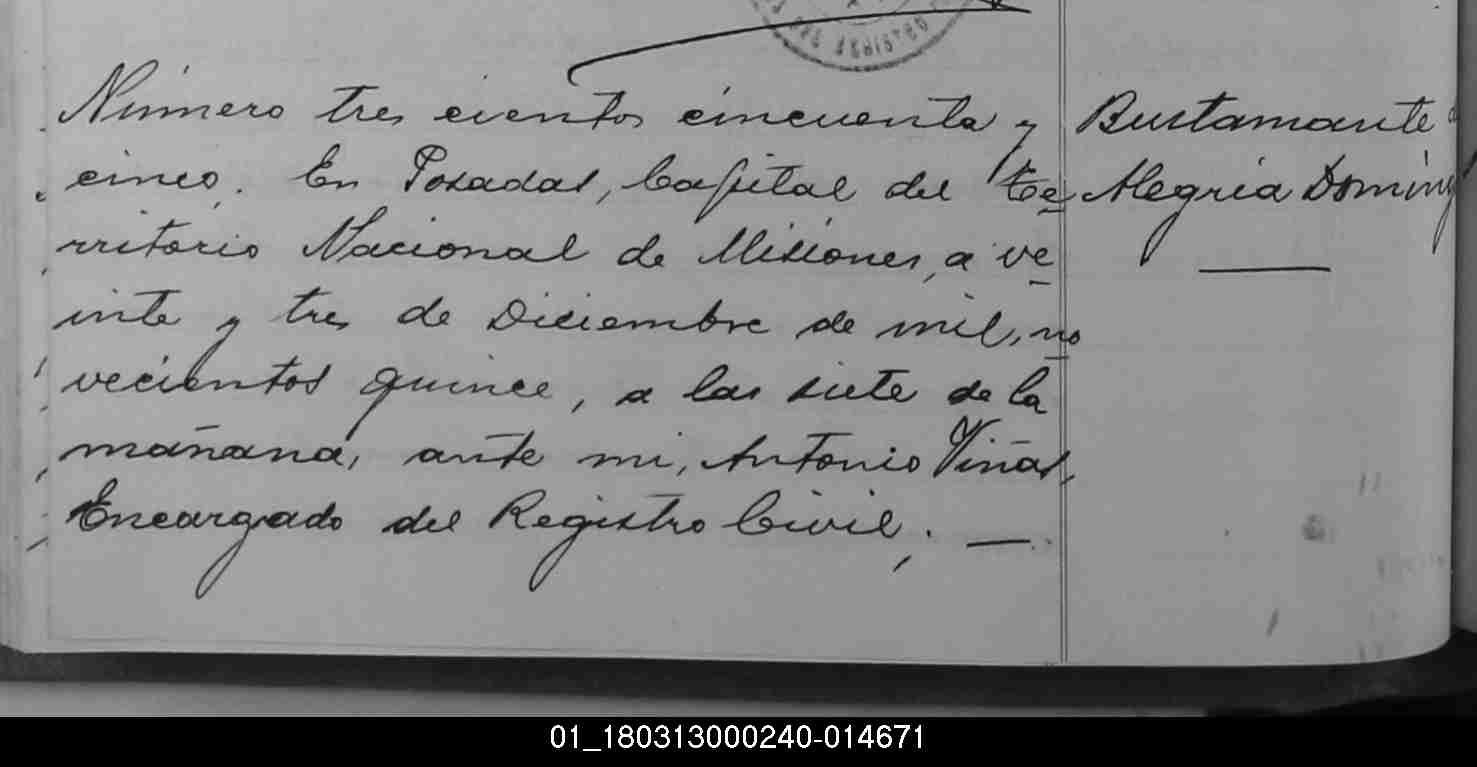 Número tres cientos cincuenta y
cinco. En Posadas, Capital del Te
rritorio Nacional de Misiones, a ve
inte y tres de Diciembre de mil, no
vecientos quince, a las siete de la
mañana, ante mi, Antonio Viñas,
Encargado del Registro Civil; —
Bustamante
Alegria
01_180313000240-014671